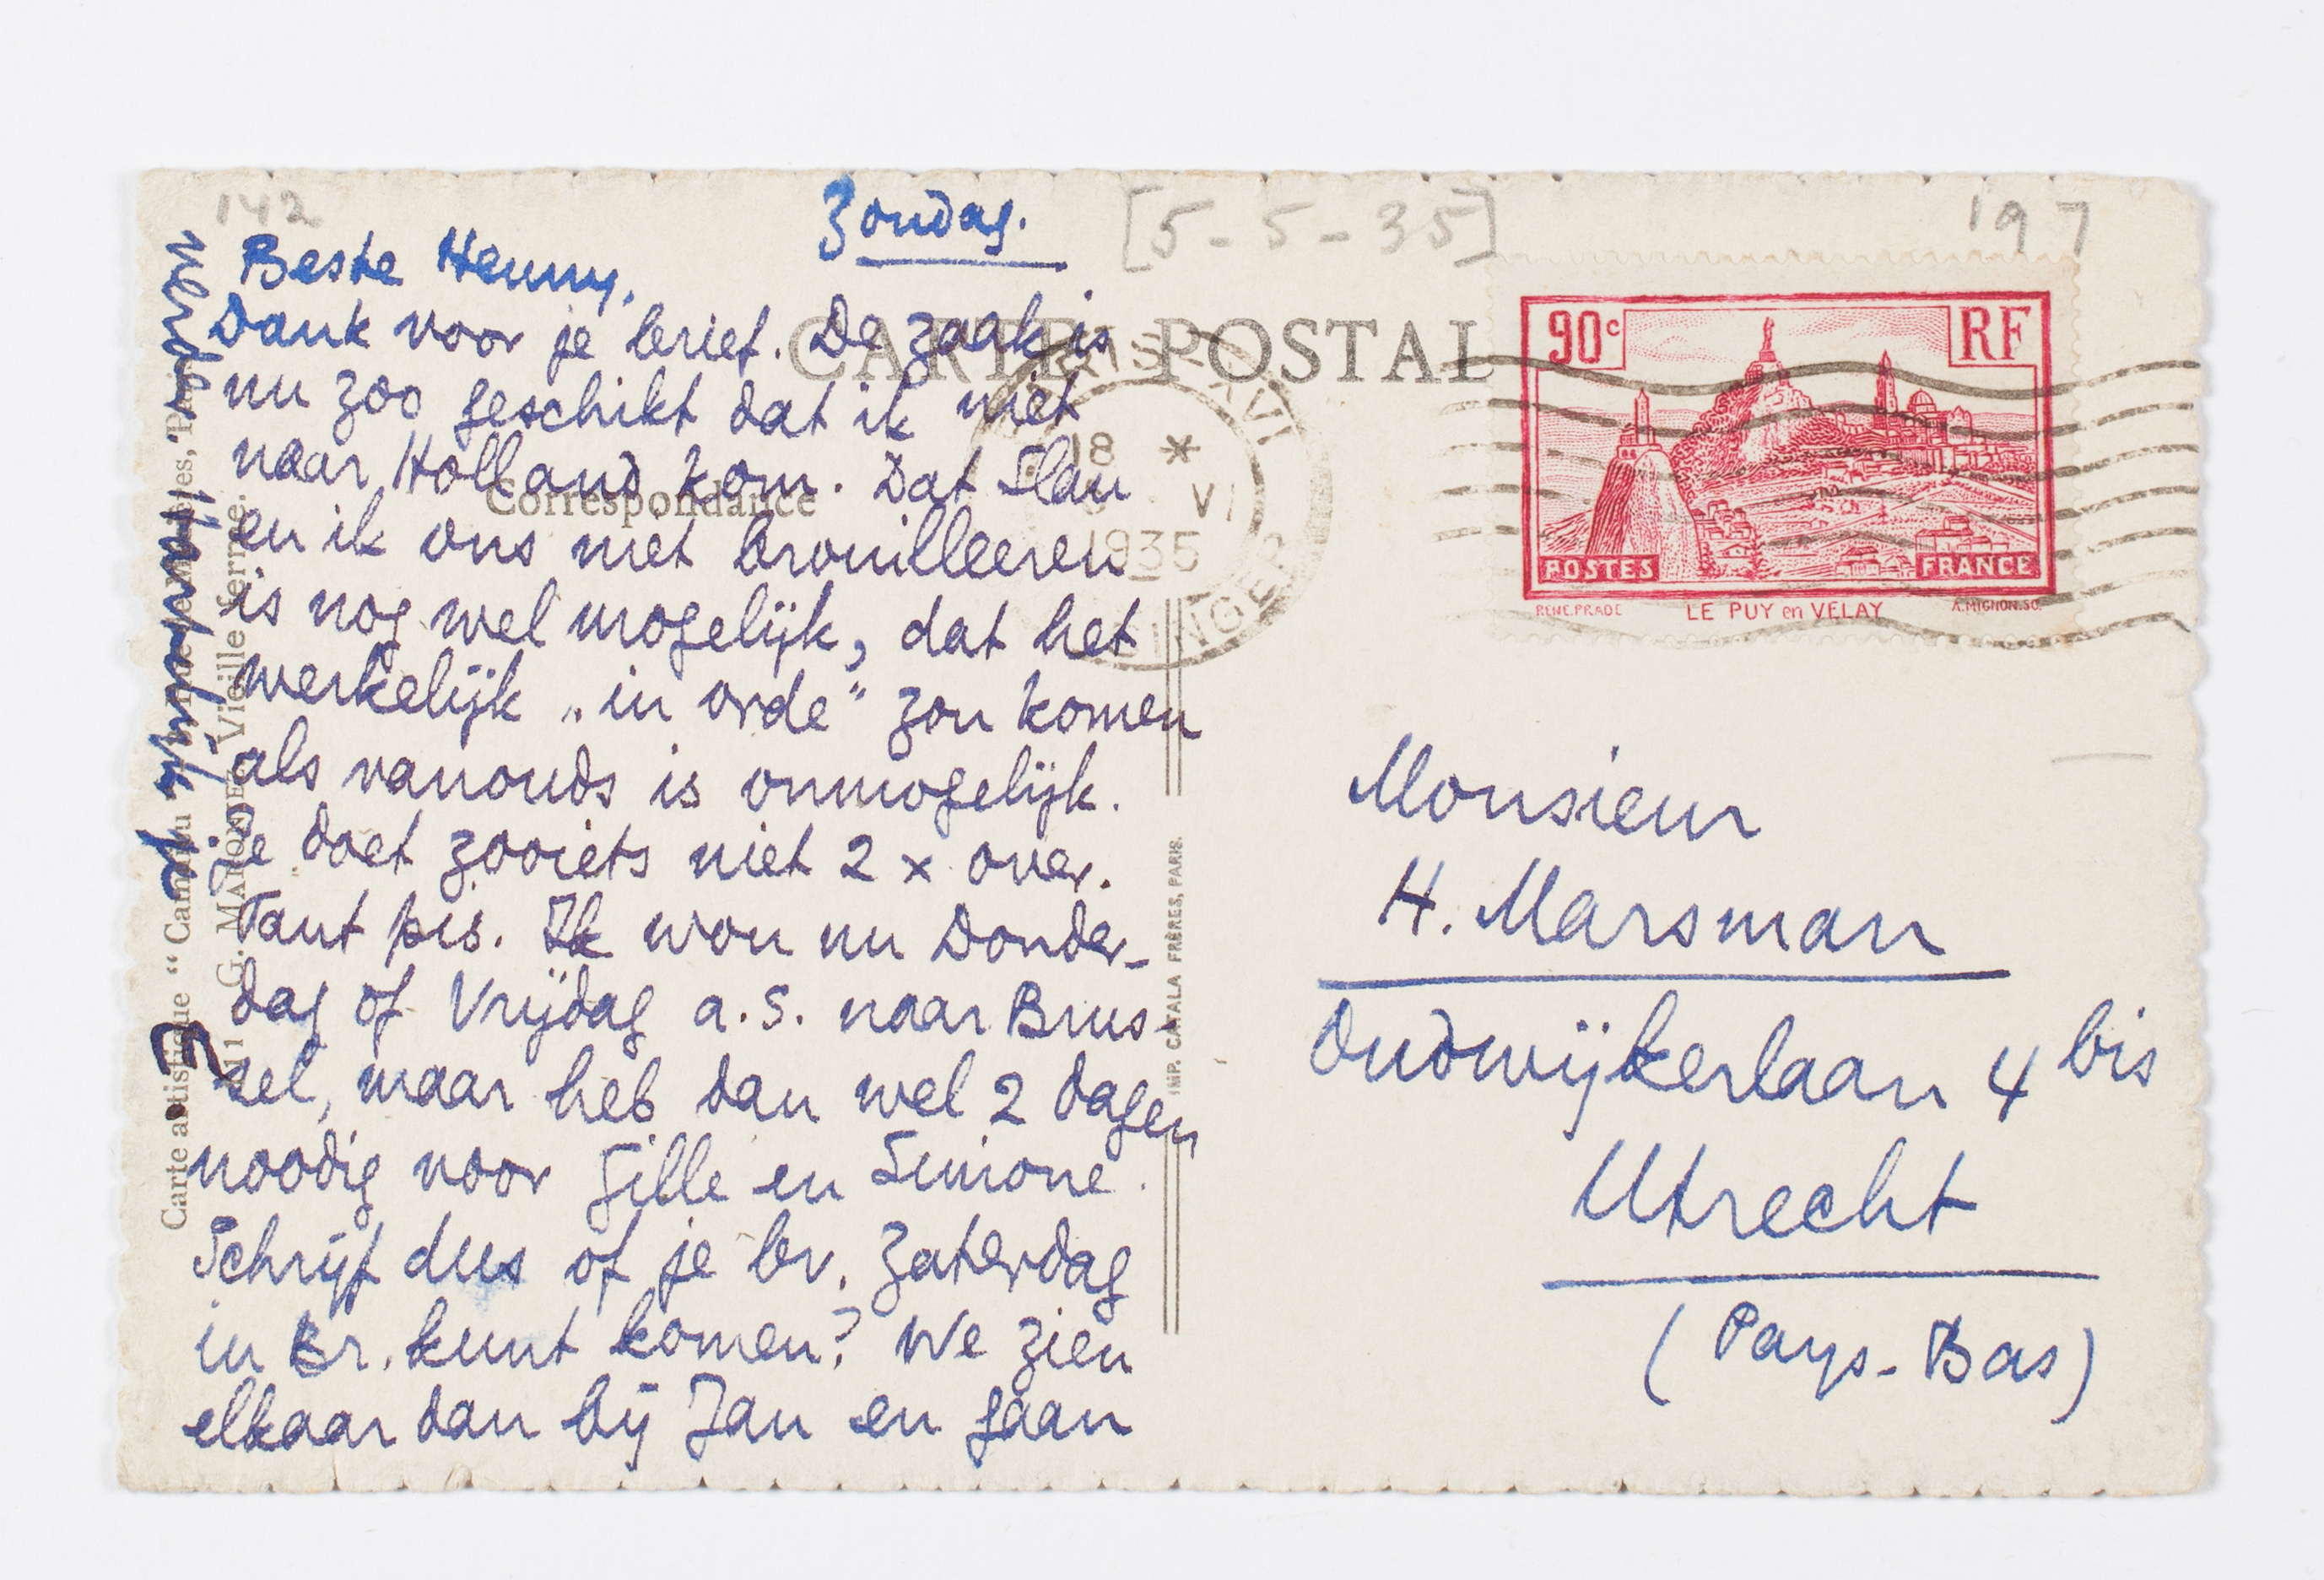 142
Zondag.
[5-5-35]
197
Beste Henny,
Dank voor je brief. De zaak is
nu zoo geschikt dat ik niet
naar Holland kom. Dat Slau
en ik ons niet brouilleeren
is nog wel mogelijk, dat het
werkelijk „in orde" zou komen
als vanouds is onmogelijk.
Je doet zooiets niet 2 x over.
Tant pis. Ik wou nu Donder-
dag of Vrijdag a.s. naar Brus-
sel, maar heb dan wel 2 dagen
noodig voor Gille en Simone.
Schrijf dus of je bv. Zaterdag
in Br. kunt komen? We zien
elkaar dan bij Jan en gaan
CARTE POSTALE
Correspondance
18 *
VI
1935
90c
RF
POSTES
FRANCE
RENE.PRADE
LE PUY en VELAY
A.MIGNON.SC.
Monsieur
H. Marsman
Oudwijkerlaan 4 bis
Utrecht
(Pays-Bas)
Carte artistique "
G. MARQUE Vieille ferme.
IMP. CATALA FRÈRES, PARIS.